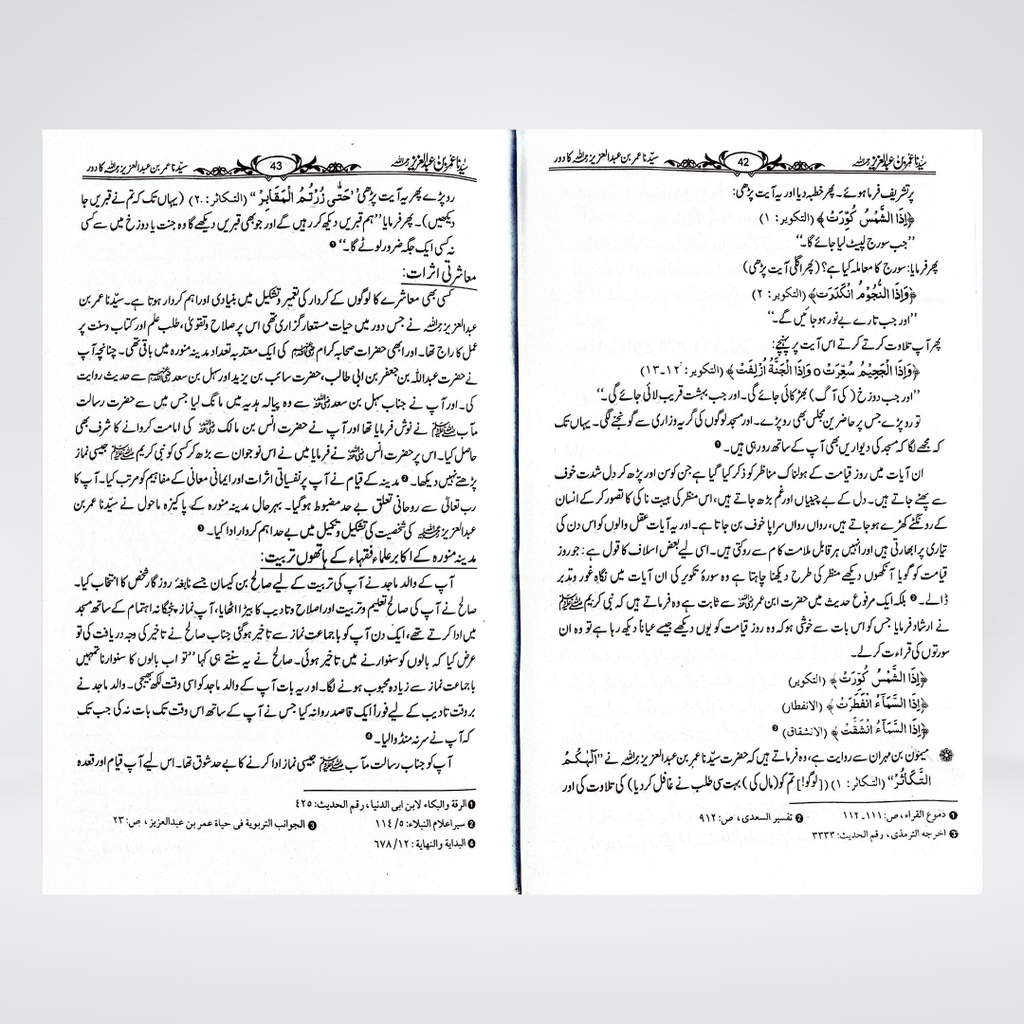 سیدنا عمر بن عبدالعزیز رحمہ اللہ 42 سیدنا عمر بن عبدالعزیز رحمہ اللہ کا دور
پر تشریف فرما ہوئے۔ پھر خطبہ دیا اور یہ آیت پڑھی:
﴿إِذَا الشَّمْسُ كُوِّرَتْ﴾ (التکویر: ۱)
’’جب سورج لپیٹ لیا جائے گا۔‘‘
پھر فرمایا: سورج کا معاملہ کیا ہے؟ (پھر اگلی آیت پڑھی)
﴿وَإِذَا النُّجُومُ انْكَدَرَتْ﴾ (التکویر: ۲)
’’اور جب تارے بے نور ہو جائیں گے۔‘‘
پھر آپ تلاوت کرتے کرتے اس آیت پر پہنچے:
﴿وَإِذَا الْجَحِيمُ سُعِّرَتْ ٥ وَإِذَا الْجَنَّةُ أُزْلِفَتْ﴾ (التکویر: ۱۲۔۱۳)
’’اور جب دوزخ (کی آگ) بھڑکائی جائے گی۔ اور جب بہشت قریب لائی جائے گی۔‘‘
تو رو پڑے جس پر حاضرین مجلس بھی رو پڑے۔ اور مسجد لوگوں کی گریہ وزاری سے گونجنے لگی۔ یہاں تک
کہ مجھے لگا کہ مسجد کی دیواریں بھی آپ کے ساتھ رو رہی ہیں۔ ❶
ان آیات میں روز قیامت کے ہولناک مناظر کو ذکر کیا گیا ہے جن کو سن اور پڑھ کر دل شدت خوف
سے پھٹے جاتے ہیں۔ دل کے بے چینیاں اور غم بڑھ جاتے ہیں، اس منظر کی ہیبت ناکی کا تصور کر کے انسان
کے رونگٹے کھڑے ہو جاتے ہیں، رواں رواں سراپا خوف بن جاتا ہے۔ اور یہ آیات عقل والوں کو اس دن کی
تیاری پر ابھارتی ہیں اور انہیں ہر قابل ملامت کام سے روکتی ہیں۔ اسی لیے بعض اسلاف کا قول ہے: جو روز
قیامت کو گویا آنکھوں دیکھے منظر کی طرح دیکھنا چاہتا ہے وہ سورۂ تکویر کی ان آیات میں نگاہِ غور وتدبر
ڈالے۔ ❷ بلکہ ایک مرفوع حدیث میں حضرت ابن عمر رضی اللہ عنہما سے ثابت ہے وہ فرماتے ہیں کہ نبی کریم ﷺ
نے ارشاد فرمایا جس کو اس بات سے خوشی ہو کہ وہ روز قیامت کو یوں دیکھے جیسے عیاناً دیکھ رہا ہے تو وہ ان
سورتوں کی قراءت کر لے۔
﴿إِذَا الشَّمْسُ كُوِّرَتْ﴾ (التکویر)
﴿إِذَا السَّمَآءُ انْفَطَرَتْ﴾ (الانفطار)
﴿إِذَا السَّمَآءُ انْشَقَّتْ﴾ (الانشقاق) ❸
میمون بن مہران سے روایت ہے، وہ فرماتے ہیں کہ حضرت سیدنا عمر بن عبدالعزیز رحمہ اللہ نے ’’اَلْهٰكُمُ
التَّكَاثُرُ‘‘ (التکاثر: ۱) ([لوگو!] تم کو (مال کی) بہت سی طلب نے غافل کر دیا) کی تلاوت کی اور
❶ دموع القراء، ص: ۱۱۱۔۱۱۲ ❷ تفسیر السعدی، ص: ۹۱۲
❸ اخرجہ الترمذی، رقم الحدیث: ۳۳۳۳
سیدنا عمر بن عبدالعزیز رحمہ اللہ 43 سیدنا عمر بن عبدالعزیز رحمہ اللہ کا دور
رو پڑے پھر یہ آیت پڑھی ’’حَتّٰى زُرْتُمُ الْمَقَابِرَ‘‘ (التکاثر: ۲) (یہاں تک کہ تم نے قبریں جا
دیکھیں)۔ پھر فرمایا ’’ہم قبریں دیکھ کر رہیں گے اور جو بھی قبریں دیکھے گا وہ جنت یا دوزخ میں سے کسی
نہ کسی ایک جگہ ضرور لوٹے گا۔‘‘ ❶
معاشرتی اثرات:
کسی بھی معاشرے کا لوگوں کے کردار کی تعمیر وتشکیل میں بنیادی اور اہم کردار ہوتا ہے۔ سیدنا عمر بن
عبدالعزیز رحمہ اللہ نے جس دور میں حیات مستعار گزاری تھی اس پر صلاح وتقویٰ، طلب علم اور کتاب وسنت پر
عمل کا راج تھا۔ اور ابھی حضرات صحابہ کرام رضی اللہ عنہم کی ایک معتد بہ تعداد مدینہ منورہ میں باقی تھی۔ چنانچہ آپ
نے حضرت عبداللہ بن جعفر بن ابی طالب، حضرت سائب بن یزید اور سہل بن سعد رضی اللہ عنہم سے حدیث روایت
کی۔ اور آپ نے جناب سہل بن سعد رضی اللہ عنہ سے وہ پیالہ ہدیہ میں مانگ لیا جس میں سے حضرت رسالت
مآب ﷺ نے نوش فرمایا تھا اور آپ نے حضرت انس بن مالک رضی اللہ عنہ کی امامت کروانے کا شرف بھی
حاصل کیا۔ اس پر حضرت انس رضی اللہ عنہ نے فرمایا میں نے اس نوجوان سے بڑھ کر کسی کو نبی کریم ﷺ جیسی نماز
پڑھتے نہیں دیکھا۔ ❷ مدینہ کے قیام نے آپ پر نفسیاتی اثرات اور ایمانی معانی کے مفاہیم کو مرتب کیا۔ آپ کا
رب تعالیٰ سے روحانی تعلق بے حد مضبوط ہو گیا۔ بہرحال مدینہ منورہ کے پاکیزہ ماحول نے سیدنا عمر بن
عبدالعزیز رحمہ اللہ کی شخصیت کی تشکیل وتکمیل میں بے حد اہم کردار ادا کیا۔ ❸
مدینہ منورہ کے اکابر علماء فقہاء کے ہاتھوں تربیت:
آپ کے والد ماجد نے آپ کی تربیت کے لیے صالح بن کیسان جیسے نابغۂ روزگار شخص کا انتخاب کیا۔
صالح نے آپ کی صالح تعلیم وتربیت اور اصلاح وتادیب کا بیڑا اٹھایا، آپ نماز پنجگانہ اہتمام کے ساتھ مسجد
میں ادا کرتے تھے، ایک دن آپ کو باجماعت نماز سے تاخیر ہو گئی جناب صالح نے تاخیر کی وجہ دریافت کی تو
عرض کیا کہ بالوں کو سنوارنے میں تاخیر ہوئی۔ صالح نے یہ سنتے ہی کہا ’’تو اب بالوں کا سنوارنا تمہیں
باجماعت نماز سے زیادہ محبوب ہونے لگا۔ اور یہ بات آپ کے والد ماجد کو اسی وقت لکھ بھیجی۔ والد ماجد نے
بروقت تادیب کے لیے فوراً ایک قاصد روانہ کیا جس نے آپ کے ساتھ اس وقت تک بات نہ کی جب تک
کہ آپ نے سر نہ منڈوا لیا۔ ❹
آپ کو جناب رسالت مآب ﷺ جیسی نماز ادا کرنے کا بے حد شوق تھا۔ اس لیے آپ قیام اور قعدہ
❶ الرقة والبکاء لابن ابی الدنیا، رقم الحدیث: ۴۲۵
❷ سیر اعلام النبلاء: ۵/۱۱۴ ❸ الجوانب التربویة فی حیاة عمر بن عبدالعزیز، ص: ۲۳
❹ البدایة والنهایة: ۱۲/۶۷۸